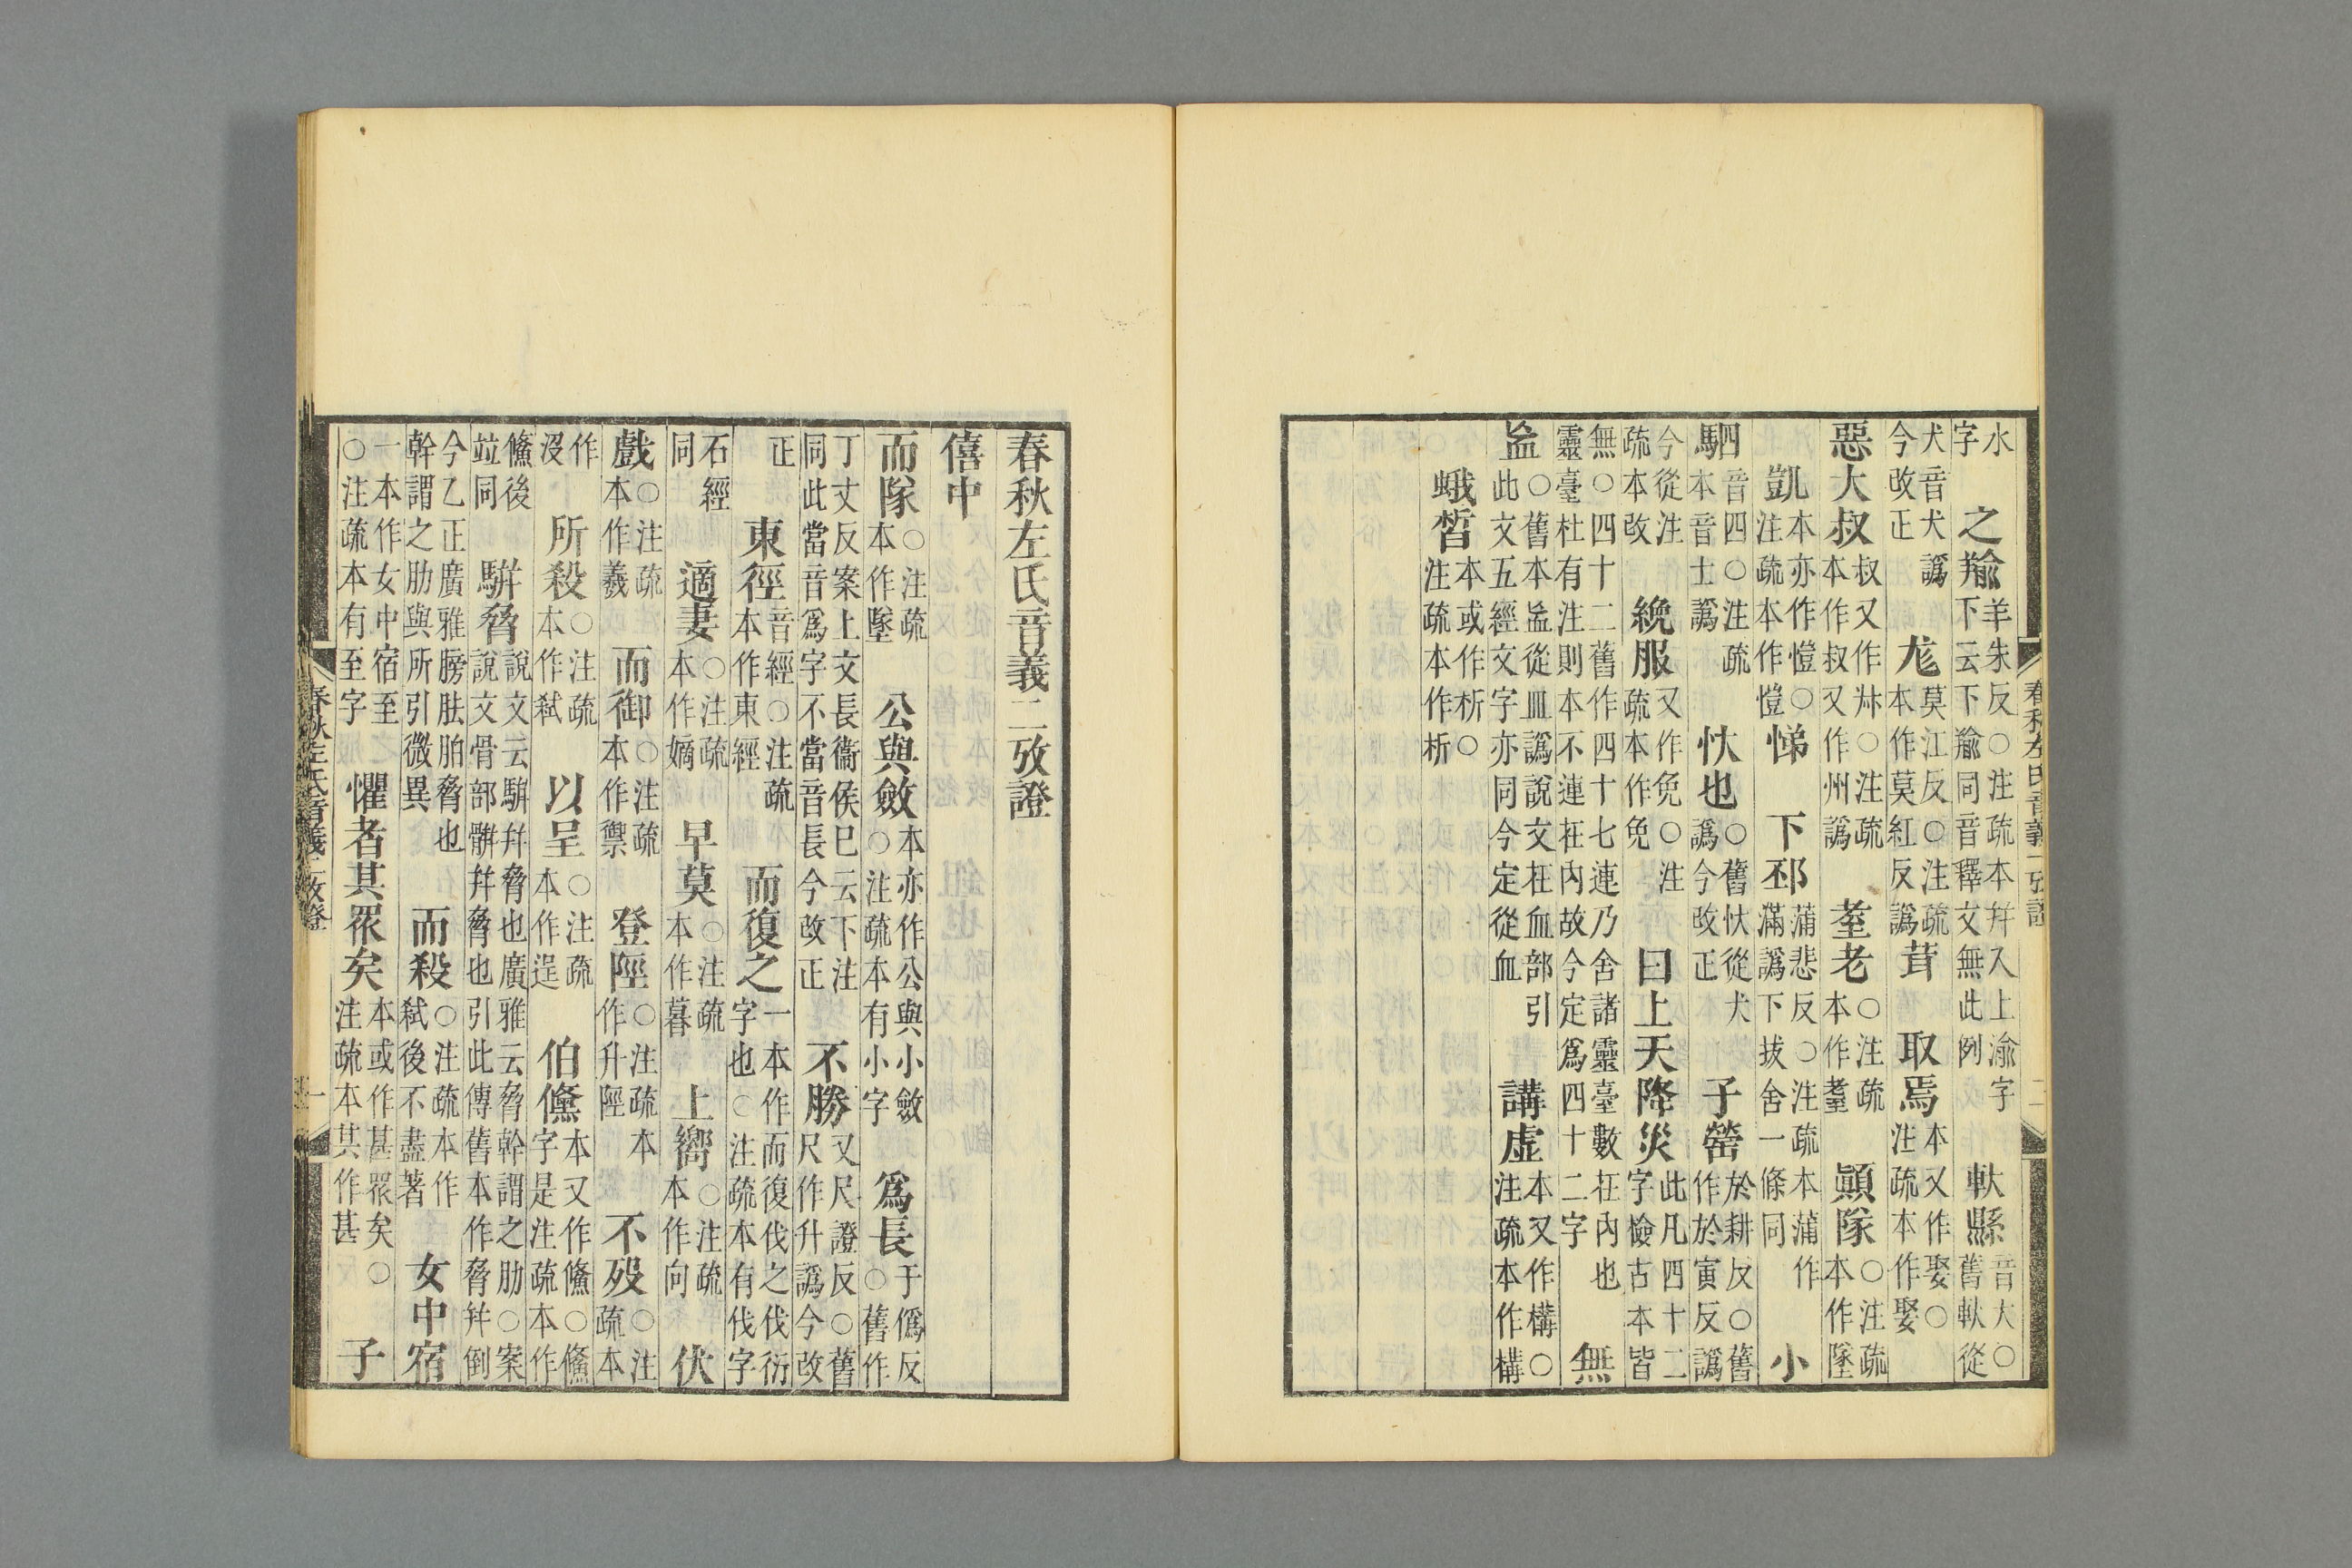 水字 之羭羊朱反○注疏本幷入上渝字下云下羭同音釋文無此例 軑縣音大○舊軑從
犬音犬譌今改正 尨莫江反○注疏本作莫紅反譌 茸 取焉本又作娶○注疏本作娶
惡大叔叔又作○注疏本作叔又作州譌 老○注疏本作耋 顚隊○注疏本作墜
凱本亦作愷○注疏本作愷 悌 下邳蒲悲反○注疏本蒲作滿譌下拔舍一條同 小
駟音四○注疏本音士譌 忕也○舊忕從犬譌今改正 子罃於耕反○舊作於寅反譌
今從注疏本改 絻服又作免○注疏本作免 曰上天降災此凡四十二字檢古本皆
無○四十二舊作四十七連乃舍諸靈臺數在內也靈臺杜有注則本不連在內故今定爲四十二字 無
衁○舊本衁從皿譌說文在血部引此文五經文字亦同今定從血 講虛本又作構○注疏本作構
蛾晳本或作析○注疏本作析
春秋左氏音義二攷證
僖中
而隊○注疏本作墜 公與斂本亦作公與小斂○注疏本有小字 爲長于僞反○舊作
丁丈反案上文長衞侯巳云下注同此當音爲字不當音長今改正 不勝又尺證反○舊尺作升譌今改
正 東徑音經○注疏本作東經 而復之一本作而復伐之伐衍字也○注疏本有伐字
石經同 適妻○注疏本作嫡 早莫○注疏本作暮 上嚮○注疏本作向 伏
戲○注疏本作羲 而御○注疏本作禦 登陘○注疏本作升陘 不歿○注疏本
作沒 所殺○注疏本作弒 以呈○注疏本作逞 伯儵本又作鯈○鯈字是注疏本作
鯈後竝同 騈脅說文云騈幷脅也廣雅云脅幹謂之肋○案說文骨部骿幷脅也引此傳舊本作脅幷倒
今乙正廣雅膀胠胉脅也幹謂之肋與所引微異 而殺○注疏本作弒後不盡著 女中宿
一本作女中宿至○注疏本有至字 懼者其眾矣本或作甚眾矣○注疏本其作甚 子
春秋左氏音義二攷證 一